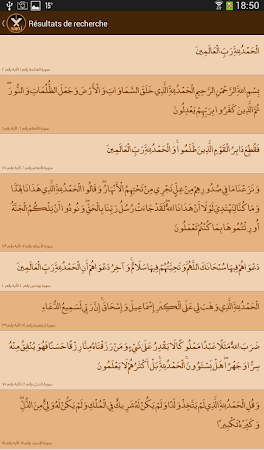 15° 18:50
Résultats de recherche
الْحَمْدُ لِلَّهِ رَبِّ الْعَالَمِينَ
بِسْمِ اللَّهِ الرَّحْمَٰنِ الرَّحِيمِ الْحَمْدُ لِلَّهِ الَّذِي خَلَقَ السَّمَاوَاتِ وَالْأَرْضَ وَجَعَلَ الظُّلُمَاتِ وَالنُّورَ ۖ
ثُمَّ الَّذِينَ كَفَرُوا بِرَبِّهِمْ يَعْدِلُونَ
فَقُطِعَ دَابِرُ الْقَوْمِ الَّذِينَ ظَلَمُوا ۚ وَالْحَمْدُ لِلَّهِ رَبِّ الْعَالَمِينَ
وَنَزَعْنَا مَا فِي صُدُورِهِمْ مِنْ غِلٍّ تَجْرِي مِنْ تَحْتِهِمُ الْأَنْهَارُ ۖ وَقَالُوا الْحَمْدُ لِلَّهِ الَّذِي هَدَانَا لِهَٰذَا
وَمَا كُنَّا لِنَهْتَدِيَ لَوْلَا أَنْ هَدَانَا اللَّهُ ۖ لَقَدْ جَاءَتْ رُسُلُ رَبِّنَا بِالْحَقِّ ۖ وَنُودُوا أَنْ تِلْكُمُ الْجَنَّةُ
أُورِثْتُمُوهَا بِمَا كُنْتُمْ تَعْمَلُونَ
دَعْوَاهُمْ فِيهَا سُبْحَانَكَ اللَّهُمَّ وَتَحِيَّتُهُمْ فِيهَا سَلَامٌ ۚ وَآخِرُ دَعْوَاهُمْ أَنِ الْحَمْدُ لِلَّهِ رَبِّ الْعَالَمِينَ
الْحَمْدُ لِلَّهِ الَّذِي وَهَبَ لِي عَلَى الْكِبَرِ إِسْمَاعِيلَ وَإِسْحَاقَ ۚ إِنَّ رَبِّي لَسَمِيعُ الدُّعَاءِ
ضَرَبَ اللَّهُ مَثَلًا عَبْدًا مَمْلُوكًا لَا يَقْدِرُ عَلَىٰ شَيْءٍ وَمَنْ رَزَقْنَاهُ مِنَّا رِزْقًا حَسَنًا فَهُوَ يُنْفِقُ مِنْهُ
سِرًّا وَجَهْرًا ۖ هَلْ يَسْتَوُونَ ۚ الْحَمْدُ لِلَّهِ ۚ بَلْ أَكْثَرُهُمْ لَا يَعْلَمُونَ
وَقُلِ الْحَمْدُ لِلَّهِ الَّذِي لَمْ يَتَّخِذْ وَلَدًا وَلَمْ يَكُنْ لَهُ شَرِيكٌ فِي الْمُلْكِ وَلَمْ يَكُنْ لَهُ وَلِيٌّ مِنَ الذُّلِّ ۖ
وَكَبِّرْهُ تَكْبِيرًا